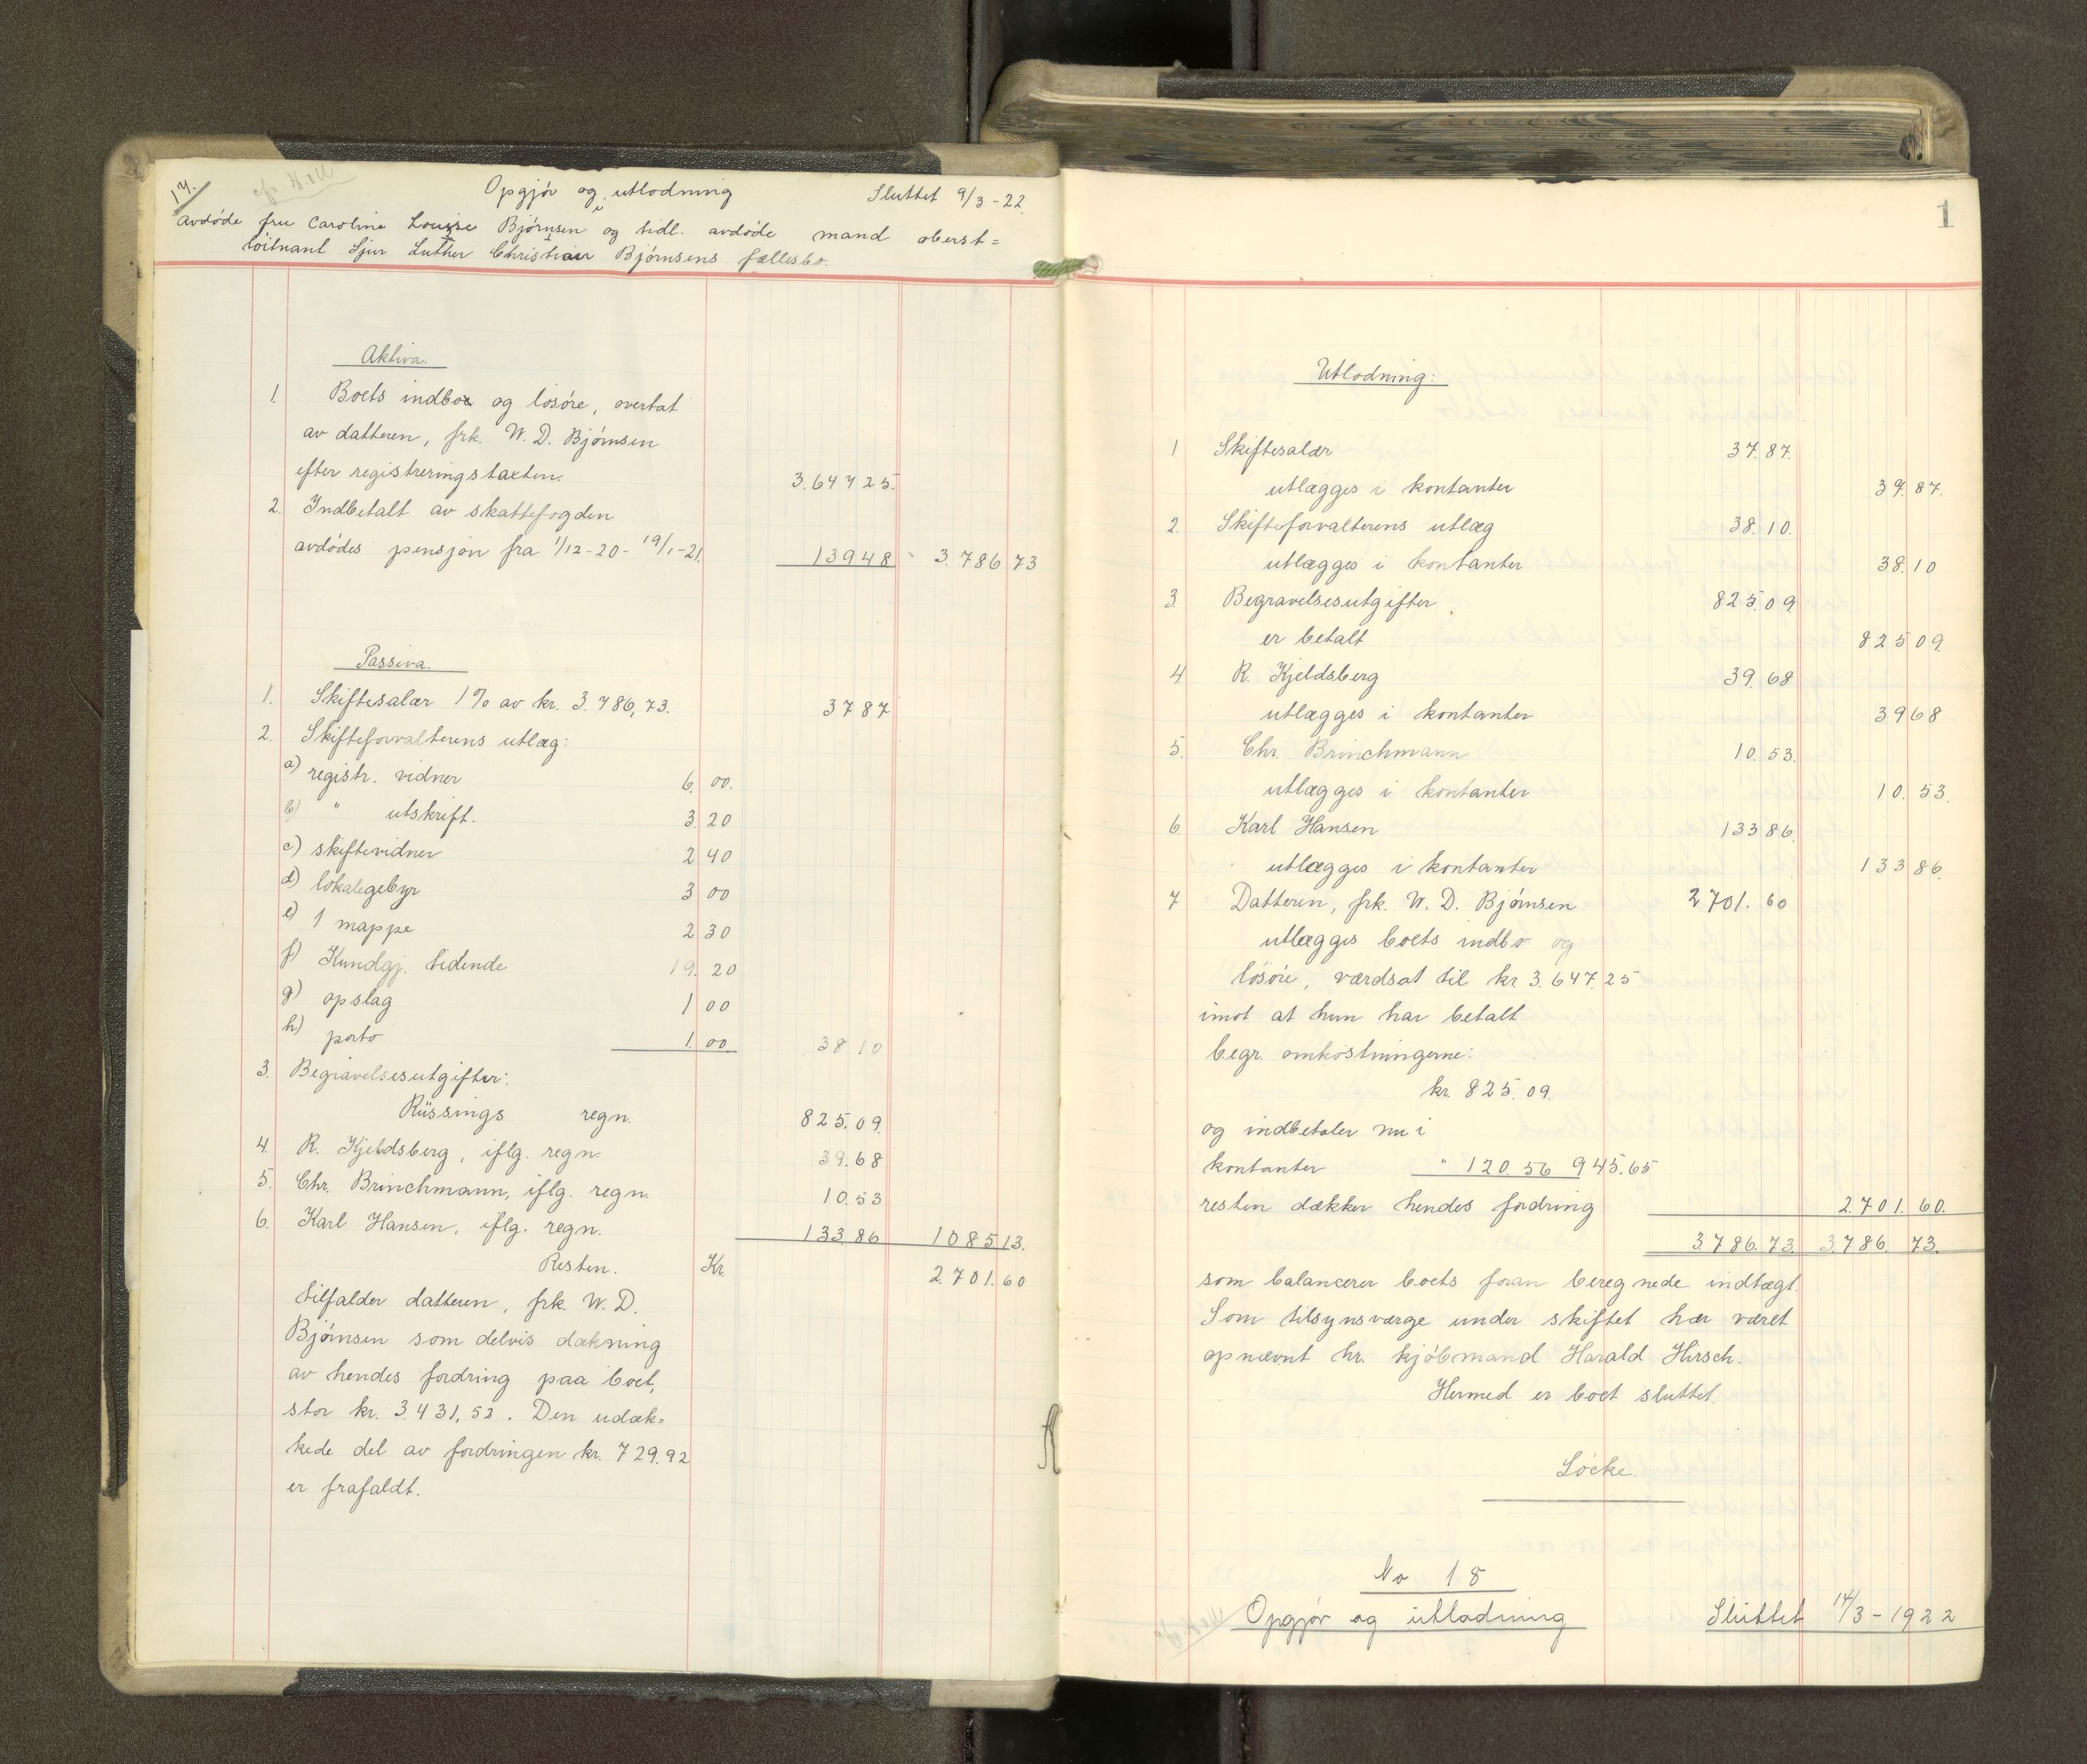 17.
Opgjör og utlodning Sluttet 9/3-22.
i
avdöde fru Caroline Louise Björnsen og tidl. avdöde mand oberst=
löitnant Sjur Luther Christian Björnsens fællesbo.
Aktiva.
1. Boets indbo og lösöre, overtat
av datteren, frk. W. D. Björnsen
efter registreringstaxten. 3.647 25.
2. Indbetalt av skattefogden
avdödes pensjon fra 1/12-20- 19/1-21. 139 48 3.786 73
Passiva.
1. Skiftesalær 1% av kr. 3.786,73. 37 87
2. Skifteforvalterens utlæg:
a) registr. vidner 6. 00.
b) " utskrift. 3 20
c) skiftevidner 2 40
d) lokalegebyr 3 00
e) 1 mappe 2 30
f) Kundgj. tidende 19. 20
g) opslag 1 00
h) porto 1. 00 38 10
3. Begravelsesutgifter:
Rüssings regn. 825.09.
4. R. Kjeldsberg, iflg. regn. 39.68
5. Chr. Brinchmann, iflg. regn. 10.53
6. Karl Hansen, iflg. regn. 133.86 1085 13.
Resten. Kr. 2.701.60
tilfalder datteren, frk. W. D.
Björnsen som delvis dækning
av hendes fordring paa boet,
stor kr. 3.431,52. Den udæk=
kede del av fordringen kr. 729.92
er frafaldt.
1
Utlodning:
1 Skiftesalær 37.87.
utlægges i kontanter 37.87.
2. Skifteforvalterens utlæg 38.10.
utlægges i kontanter 38.10
3 Begravelsesutgifter 825.09
er betalt 825 09
4 R. Kjeldsberg 39.68
utlægges i kontanter 39 68
5. Chr. Brinchmann 10.53.
utlægges i kontanter 10.53.
6. Karl Hansen 133 86.
utlægges i kontanter 133 86.
7 Datteren, frk. W. D. Björnsen 2701.60
utlægges boets indbo og
lösöre, værdsat til kr 3.647.25
imot at hun har betalt
begr. omkostningerne:
kr. 825.09.
og indbetaler nu i
kontanter " 120.56 945.65
resten dækker hendes fordring 2.701.60.
3.786.73. 3.786.73.
som balancerer boets foran beregnede indtægt.
Som tilsynsværge under skiftet har været
opnævnt hr. kjöbmand Harald Hirsch.
Hermed er boet sluttet.
Löcke.
No 18
Opgjör og utlodning Sluttet 14/3-1922